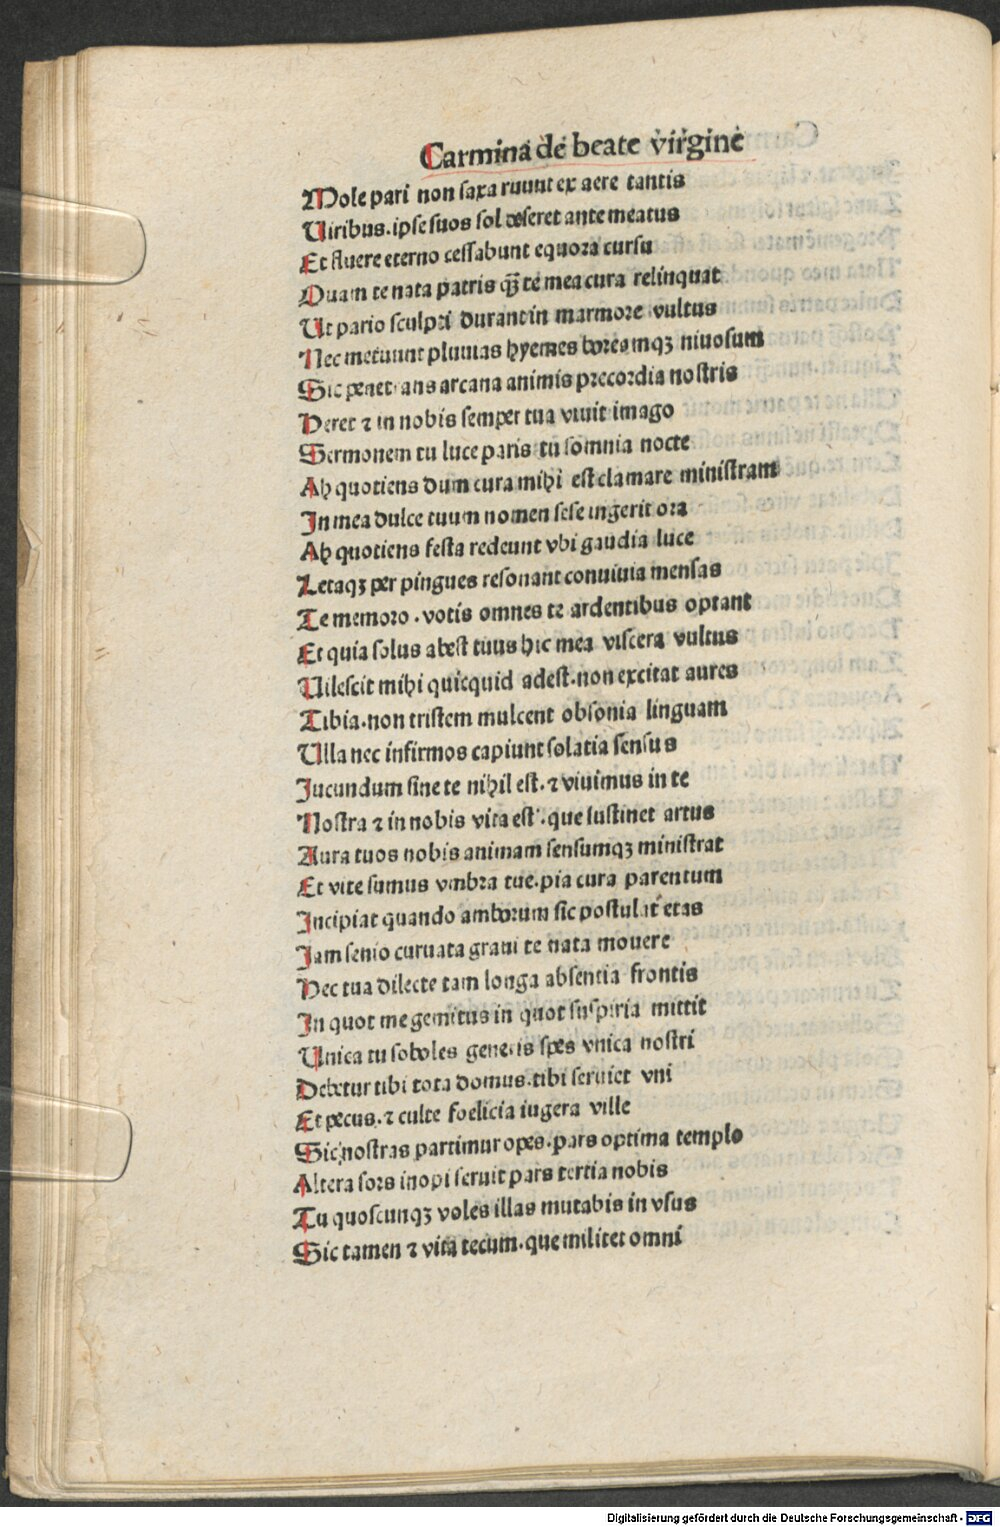 Carmina de beate virgine
Mole pari non saxa ruunt ex aere tantis
Uiribus. ipse suos sol deseret ante meatus
Et fluere eterno cessabunt equora cursu
Quam te nata patris qȝ te mea cura relinquat
Ut pario sculpti durant in marmore vultus
Nec metuunt pluuias hyemes boreamqȝ niuosum
Sic penetrans arcana animis precordia nostris
Heret ⁊ in nobis semper tua viuit imago
Sermonem tu luce paris tu somnia nocte
Ah quotiens dum cura mihi est clamare ministram
In mea dulce tuum nomen sese ingerit ora
Ah quotiens festa redeunt vbi gaudia luce
Letaqȝ per pingues resonant conuiuia mensas
Te memoro. votis omnes te ardentibus optant
Et quia solus abest tuus hic mea viscera vultus
Uilescit mihi quicquid adest. non excitat aures
Tibia. non tristem mulcent obsonia linguam
Ulla nec infirmos capiunt solatia sensus
Jucundum sine te nihil est. ⁊ viuimus in te
Nostra ⁊ in nobis vita est. que sustinet artus
Aura tuos nobis animam sensumqȝ ministrat
Et vite sumus vmbra tue. pia cura parentum
Incipiat quando amborum sic postulat etas
Jam senio curuata graui te nata mouere
Nec tua dilecte tam longa absentia frontis
In quot me gemitus in quot suspiria mittit
Unica tu soboles generis spes vnica nostri
Debetur tibi tota domus. tibi seruiet vni
Et pecus. ⁊ culte foelicia iugera ville
Sic nostras partimur opes. pars optima templo
Altera sors inopi seruit pars tertia nobis
Tu quoscunqȝ voles illas mutabis in vsus
Sic tamen ⁊ vita tecum. que militet omni
Digitalisierung gefördert durch die Deutsche Forschungsgemeinschaft - DFG